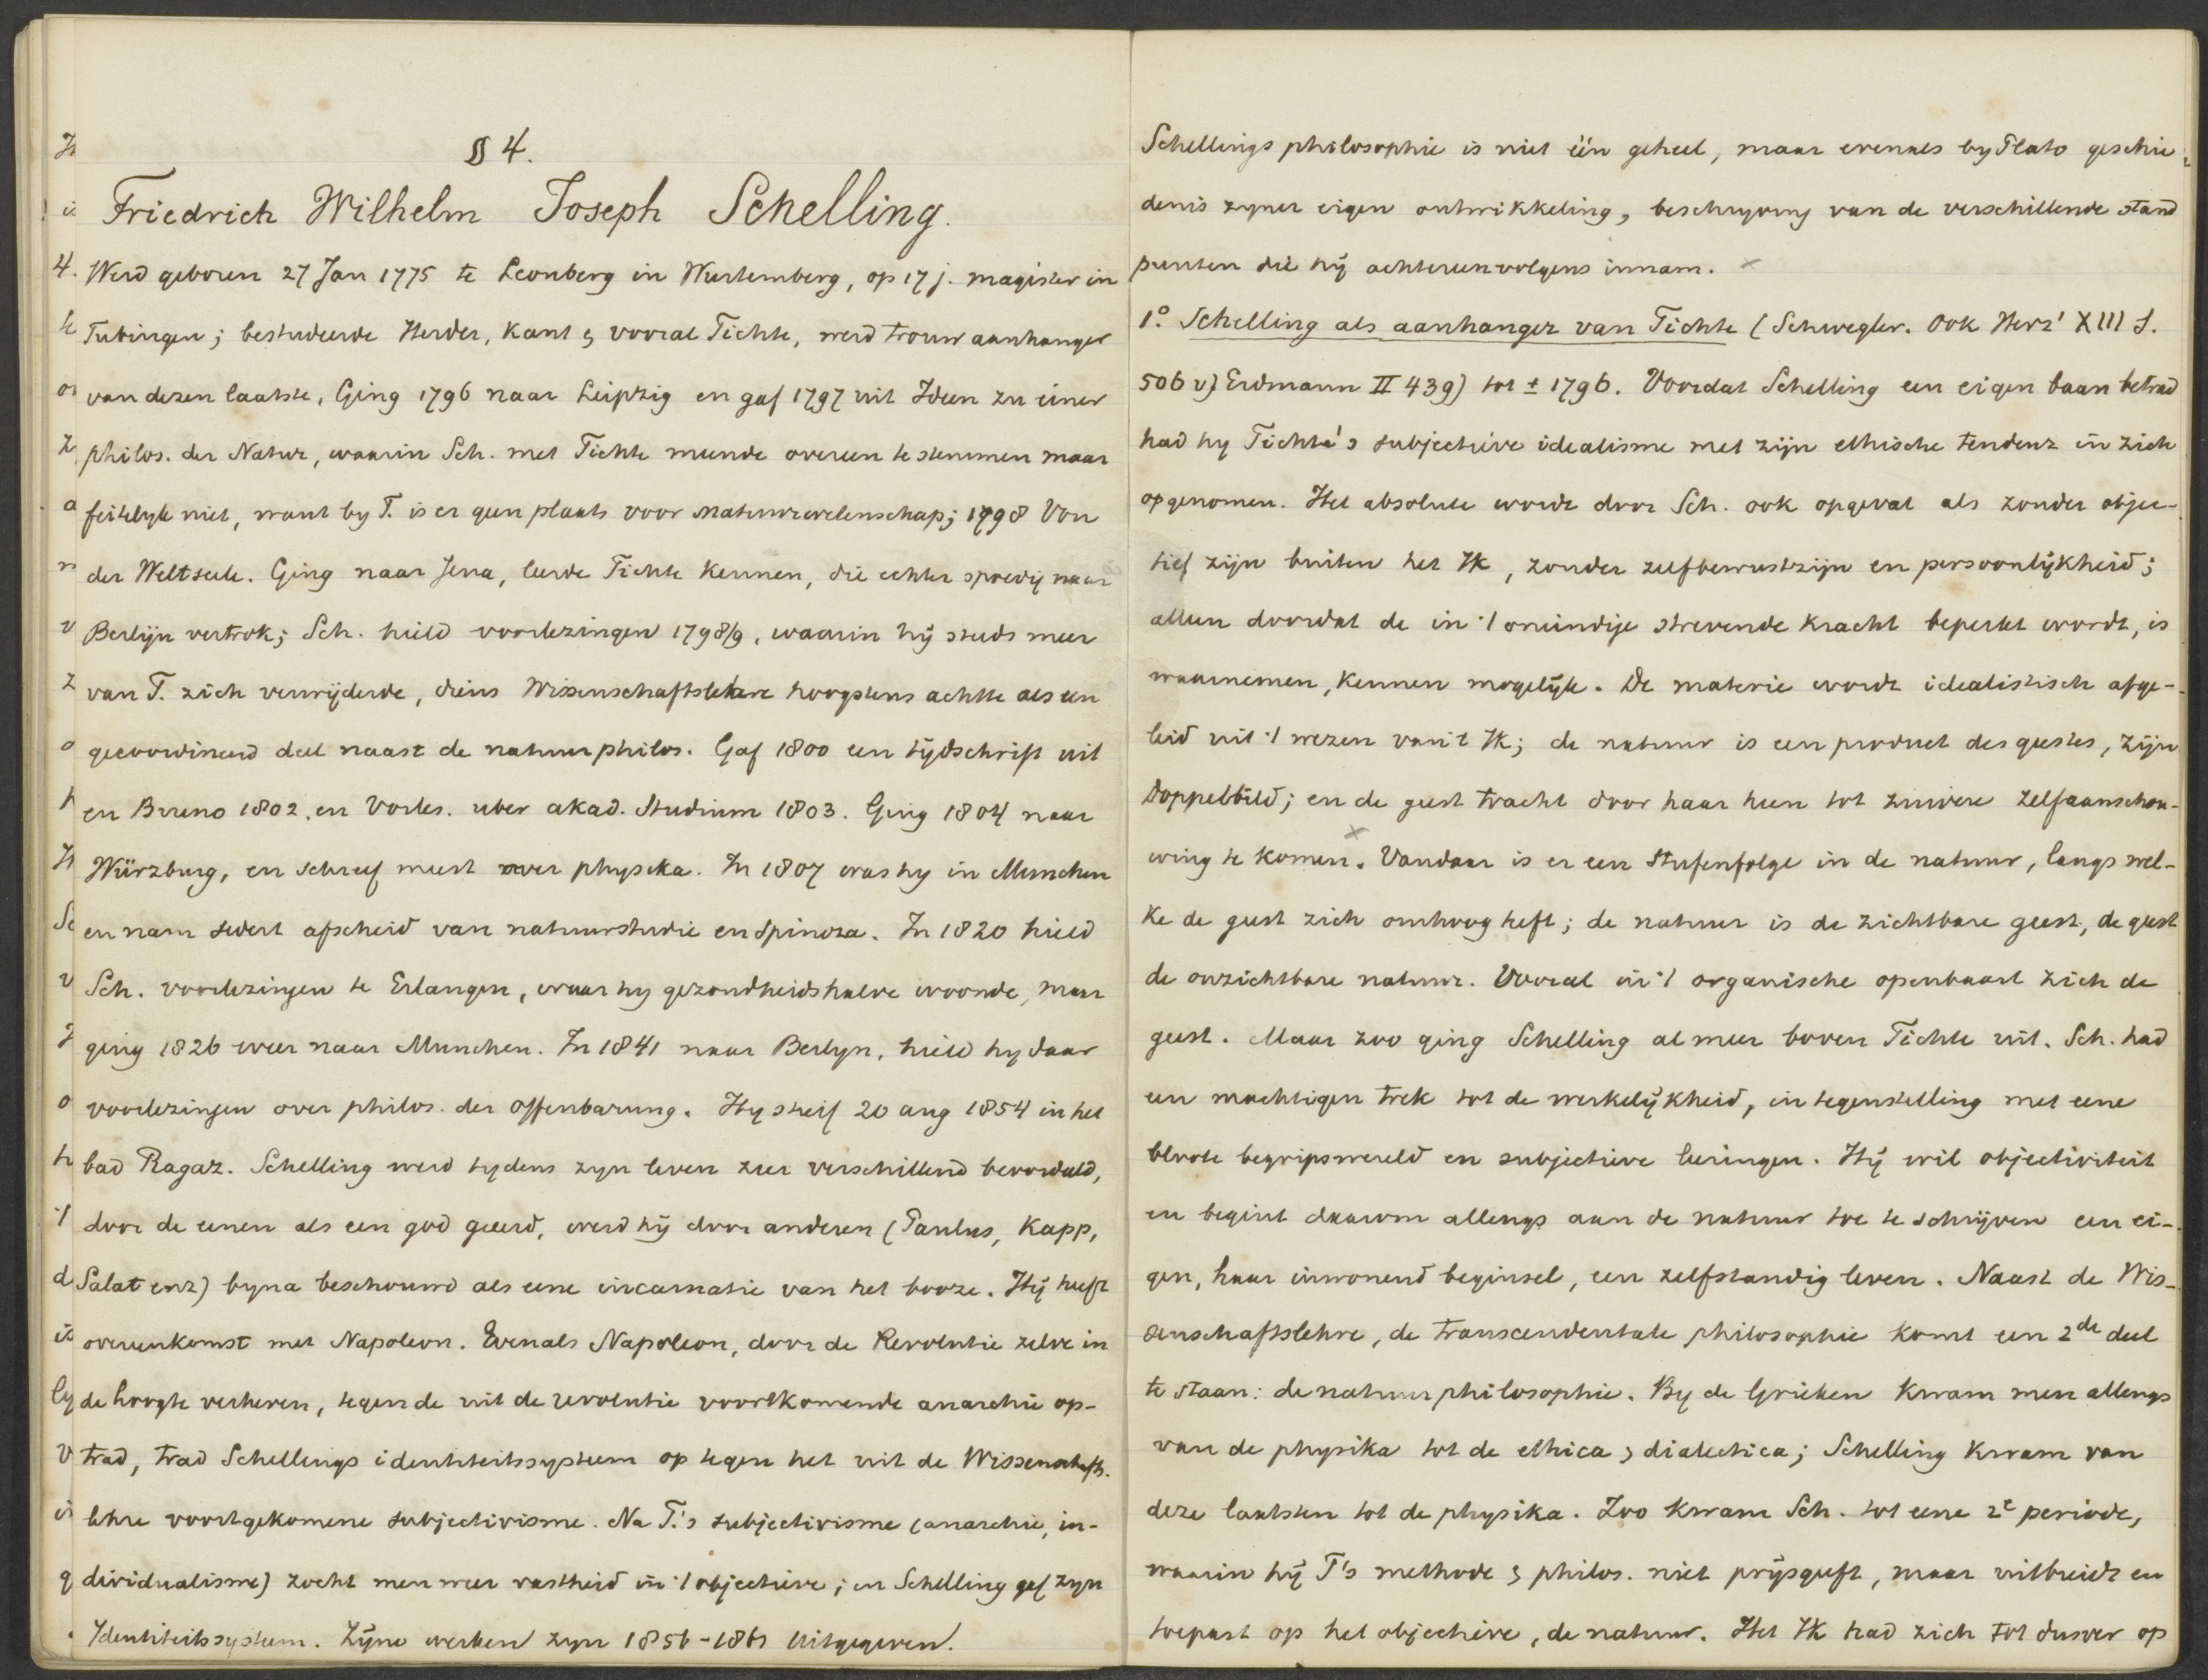 § 4.
Friedrich Wilhelm Joseph Schelling.
Werd geboren 27 Jan 1775 te Leonberg in Wurtemberg, op 17 j. magister in
Tubingen; bestudeerde Herder, Kant & vooral Fichte, werd trouw aanhanger
van dezen laatste, Ging 1796 naar Leipzig en gaf 1797 uit Ideen zu einer
philos. der Natur, waarin Sch. met Fichte meende overeen te stemmen maar
feitelyk niet, want by F. is er geen plaats voor natuurwetenschap; 1798 Von
der Weltseele. Ging naar Jena, leerde Fichte kennen, die echter spoedig naar
Berlijn vertrok; Sch. hield voorlezingen 1798/9, waarin hij steeds meer
van F. zich verwijderde, diens Wissenschaftslehre hoogstens achtte als een
gecoordineerd deel naast de natuurphilos. Gaf 1800 een tijdschrift uit
en Bruno 1802, en Vorles. uber akad. Studium 1803. Ging 1804 naar
Würzburg, en schreef meest over physika. In 1807 was hy in Munchen
en nam sedert afscheid van natuurstudie en Spinoza. In 1820 hield
Sch. voorlezingen te Erlangen, waar hy gezondheidshalve woonde, maar
ging 1826 weer naar Munchen. In 1841 naar Berlyn, hield hy daar
voorlezingen over philos. der Offenbarung. Hy stierf 20 aug 1854 in het
bad Ragaz. Schelling werd tydens zyn leven zeer verschillend beoordeeld,
door de eenen als een god geeerd, werd hij door anderen (Paulus, Kapp,
Salat enz) byna beschouwd als eene incarnatie van het booze. Hij heeft
overeenkomst met Napoleon. Evenals Napoleon, door de Revolutie zelve in
de hoogte verheven, tegen de uit de revolutie voortkomende anarchie op-
trad, trad Schellings identiteitssysteem op tegen het uit de Wissenschafts-
lehre voortgekomene subjectivisme. Na F.'s subjectivisme (anarchie, in-
dividualisme) zocht men weer vastheid in 't objectieve; en Schelling gaf zyn
Identiteitssysteem. Zijne werken zyn 1856-1861 uitgegeven.
Schellings philosophie is niet één geheel, maar evenals by Plato geschie-
denis zyner eigen ontwikkeling, beschryving van de verschillende stand
punten die hij achtereenvolgens innam.
1.° Schelling als aanhanger van Fichte (Schwegler. Ook Herz' XIII S.
506 v) Erdmann II 439) tot ± 1796. Voordat Schelling een eigen baan betrad
had hy Fichte's subjectieve idealisme met zijn ethische tendenz in zich
opgenomen. Het absolute wordt door Sch. ook opgevat als zonder objec-
tief zijn buiten het Ik, zonder zelfbewustzijn en persoonlijkheid;
alleen doordat de in 't oneindige strevende kracht beperkt wordt, is
waarnemen, kennen mogelijk. De materie wordt idealistisch afge-
leid uit 't wezen van 't Ik; de natuur is een product des geestes, zijn
Doppelbild; en de geest tracht door haar heen tot zuivere zelfaanschou-
wing te komen. Vandaar is er een Stufenfolge in de natuur, langs wel-
ke de geest zich omhoog heft; de natuur is de zichtbare geest, de geest
de onzichtbare natuur. Vooral in 't organische openbaart zich de
geest. Maar zoo ging Schelling al meer boven Fichte uit. Sch. had
een machtigen trek tot de werkelijkheid, in tegenstelling met eene
bloote begripswereld en subjectieve leeringen. Hij wil objectiviteit
en begint daarom allengs aan de natuur toe te schrijven een ei-
gen, haar inwonend beginsel, een zelfstandig leven. Naast de Wis-
senschaftslehre, de transcendentale philosophie komt een 2de deel
te staan: de natuurphilosophie. By de Grieken kwam men allengs
van de physika tot de ethica & dialectica; Schelling kwam van
deze laatsten tot de physika. Zoo kwam Sch. tot eene 2e periode,
waarin hij F's methode & philos. niet prijsgeeft, maar uitbreidt en
toepast op het objectieve, de natuur. Het Ik had zich tot dusver op